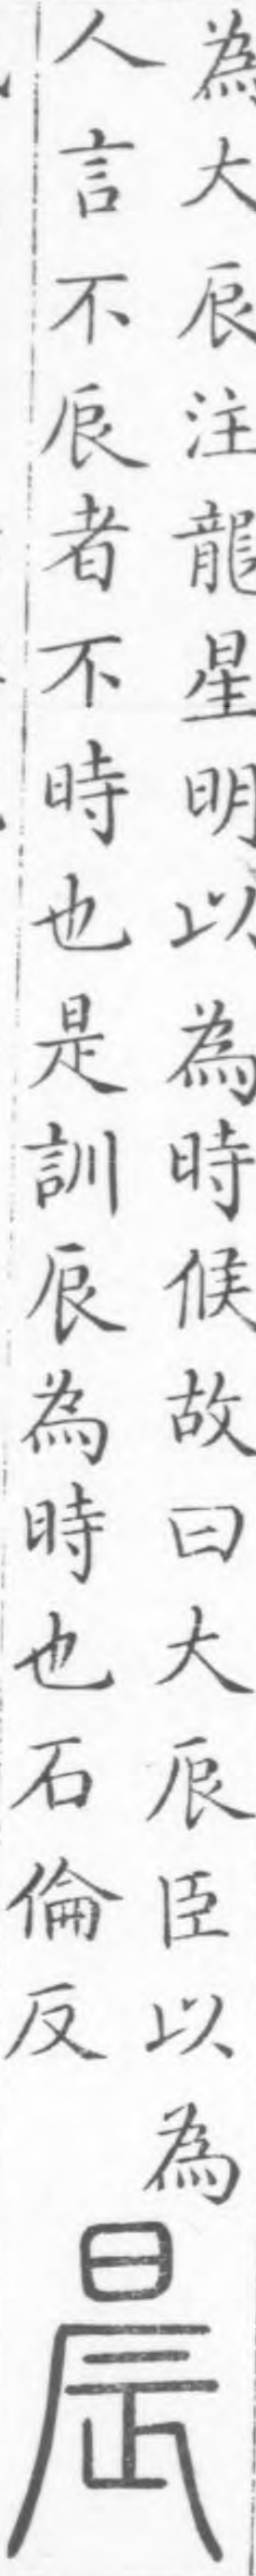 為大辰注龍星明以為時候故曰大辰臣以為
人言不辰者不時也是訓辰為時也石倫反
晨